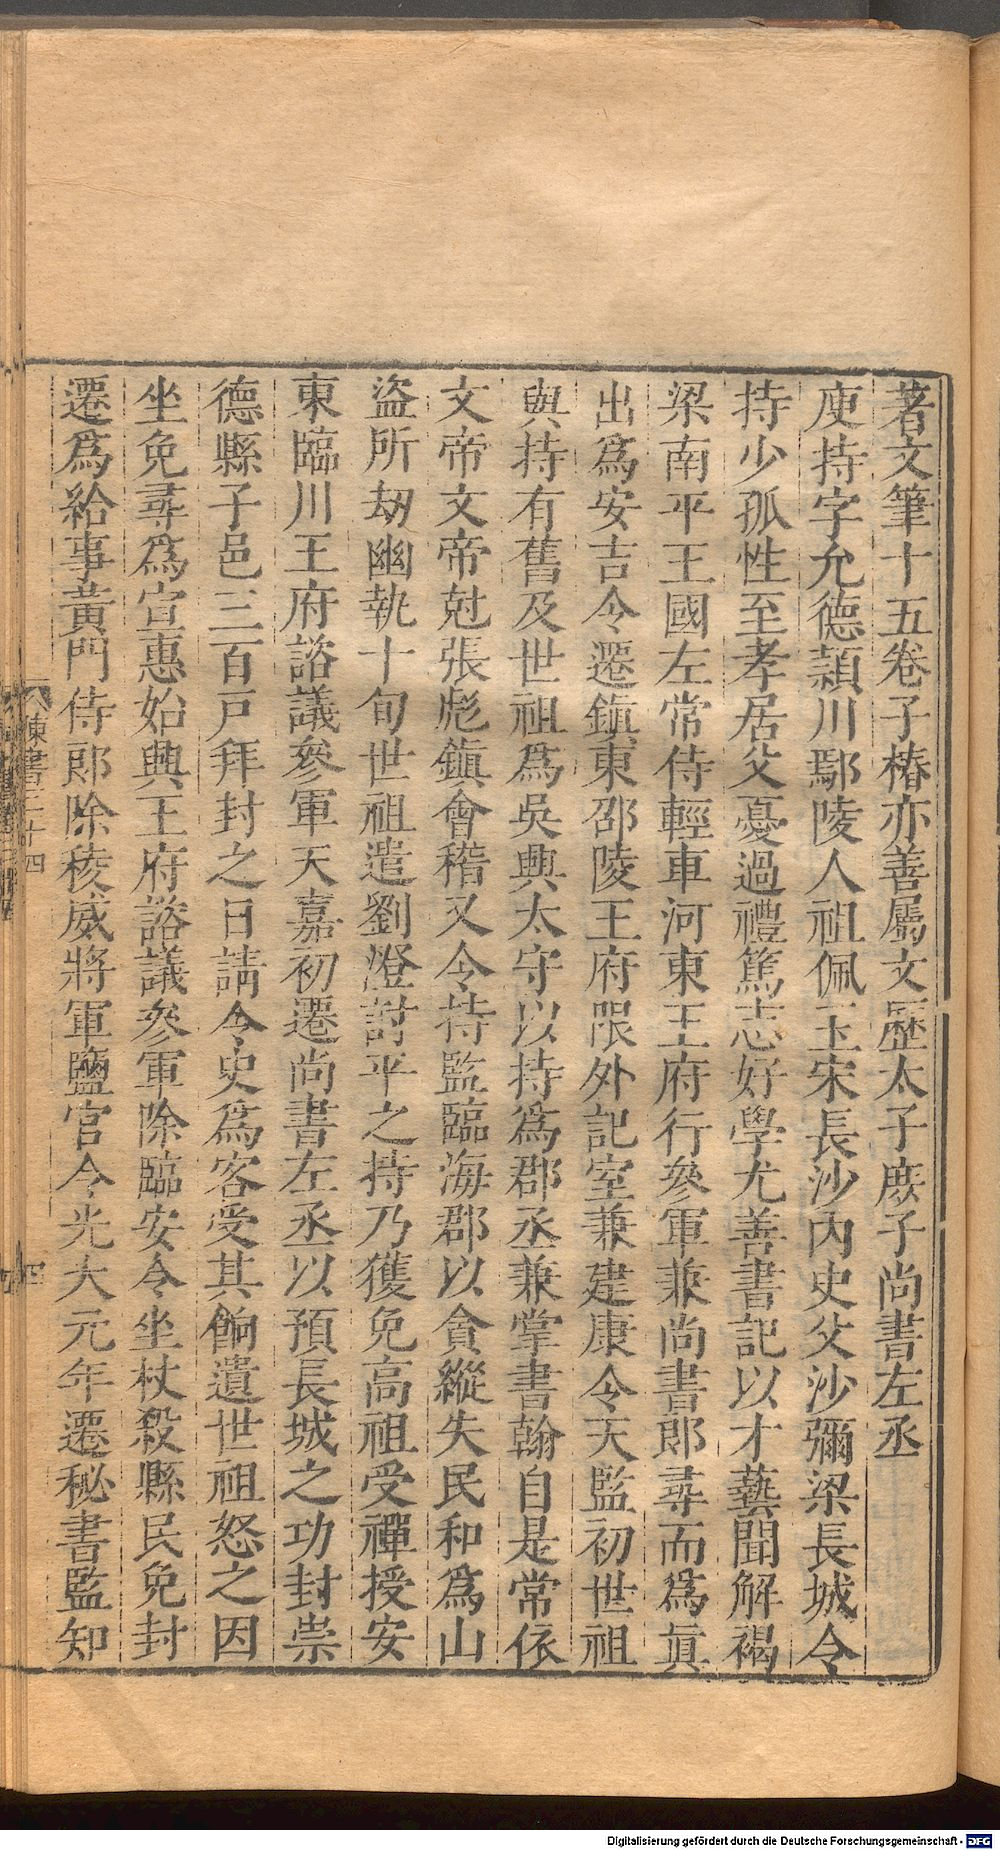 著文筆十五卷子椿亦善屬文歷太子庶子尚書左丞
庾持字允德潁川鄢陵人祖佩玉宋長沙內史父沙彌梁長城令
持少孤性至孝居父憂過禮篤志好學尤善書記以才藝聞解褐
梁南平王國左常侍輕車河東王府行參軍兼尚書郎尋而為眞
出為安吉令遷鎭東邵陵王府限外記室兼建康令天監初世祖
與持有舊及世祖為吳興太守以持為郡丞兼掌書翰自是常依
文帝文帝尅張彪鎭會稽又令持監臨海郡以貪縱失民和為山
盜所劫幽執十旬世祖遣劉澄討平之持乃獲免高祖受禪授安
東臨川王府諮議參軍天嘉初遷尚書左丞以預長城之功封崇
德縣子邑三百戸拜封之日請令史為客受其餉遺世祖怒之因
坐免尋為宣惠始興王府諮議參軍除臨安令坐杖殺縣民免封
遷為給事黃門侍郎除稜威將軍鹽官令光大元年遷秘書監知
陳書三十四
四
Digitalisierung gefördert durch die Deutsche Forschungsgemeinschaft - DFG